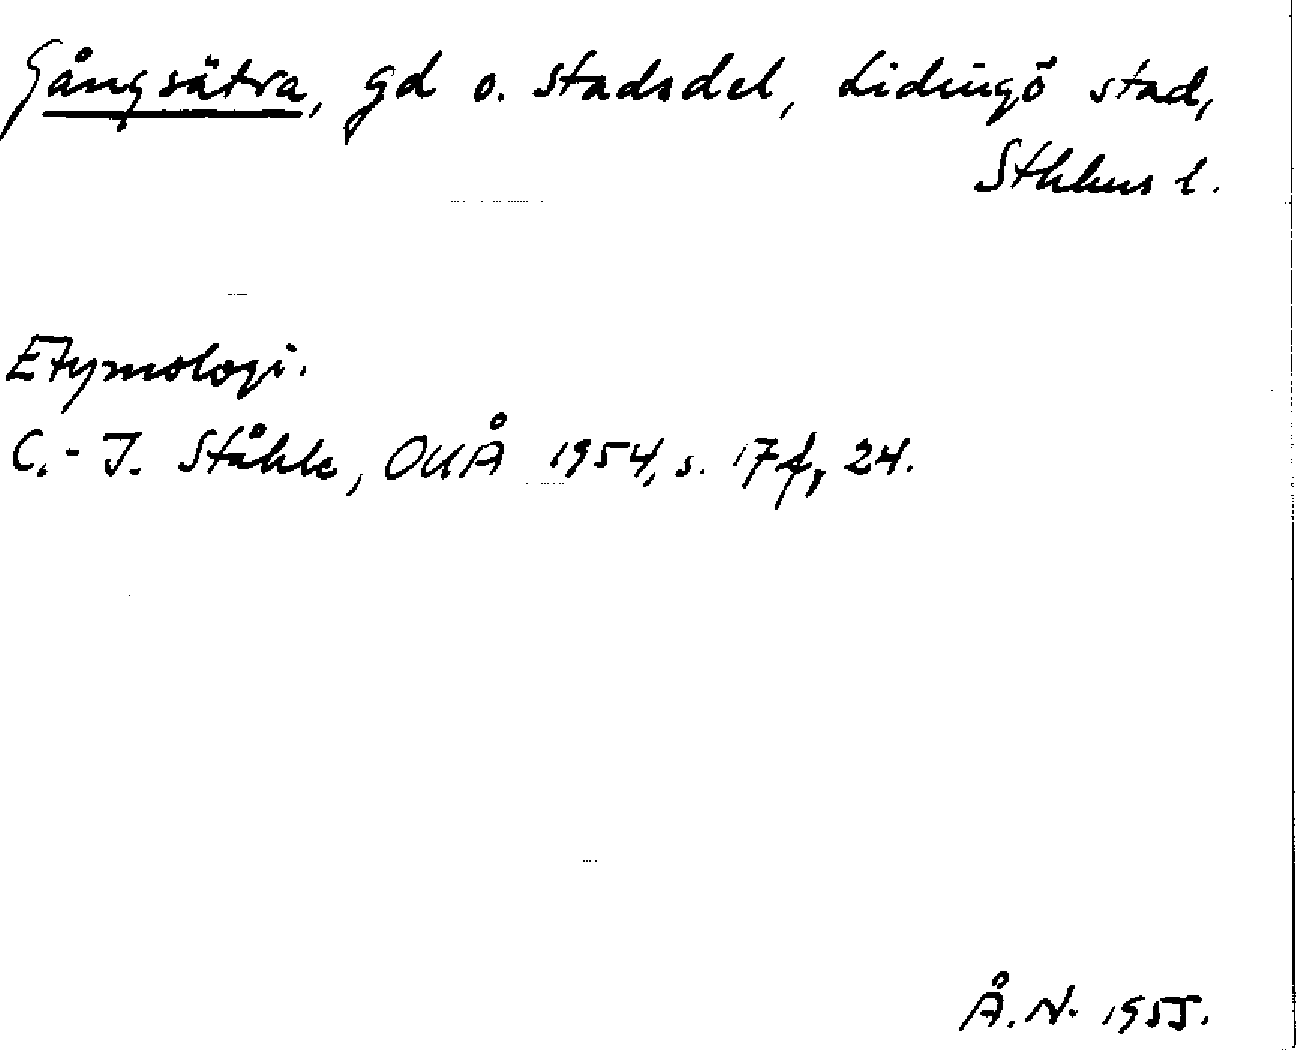 Gångsätra, gd o. stadsdel, Lidingö stad,
Sthlms l.
Etymologi.
C.-I. Ståhle, OUÅ 1954, s. 17 f, 24.
Å. N. 1955.